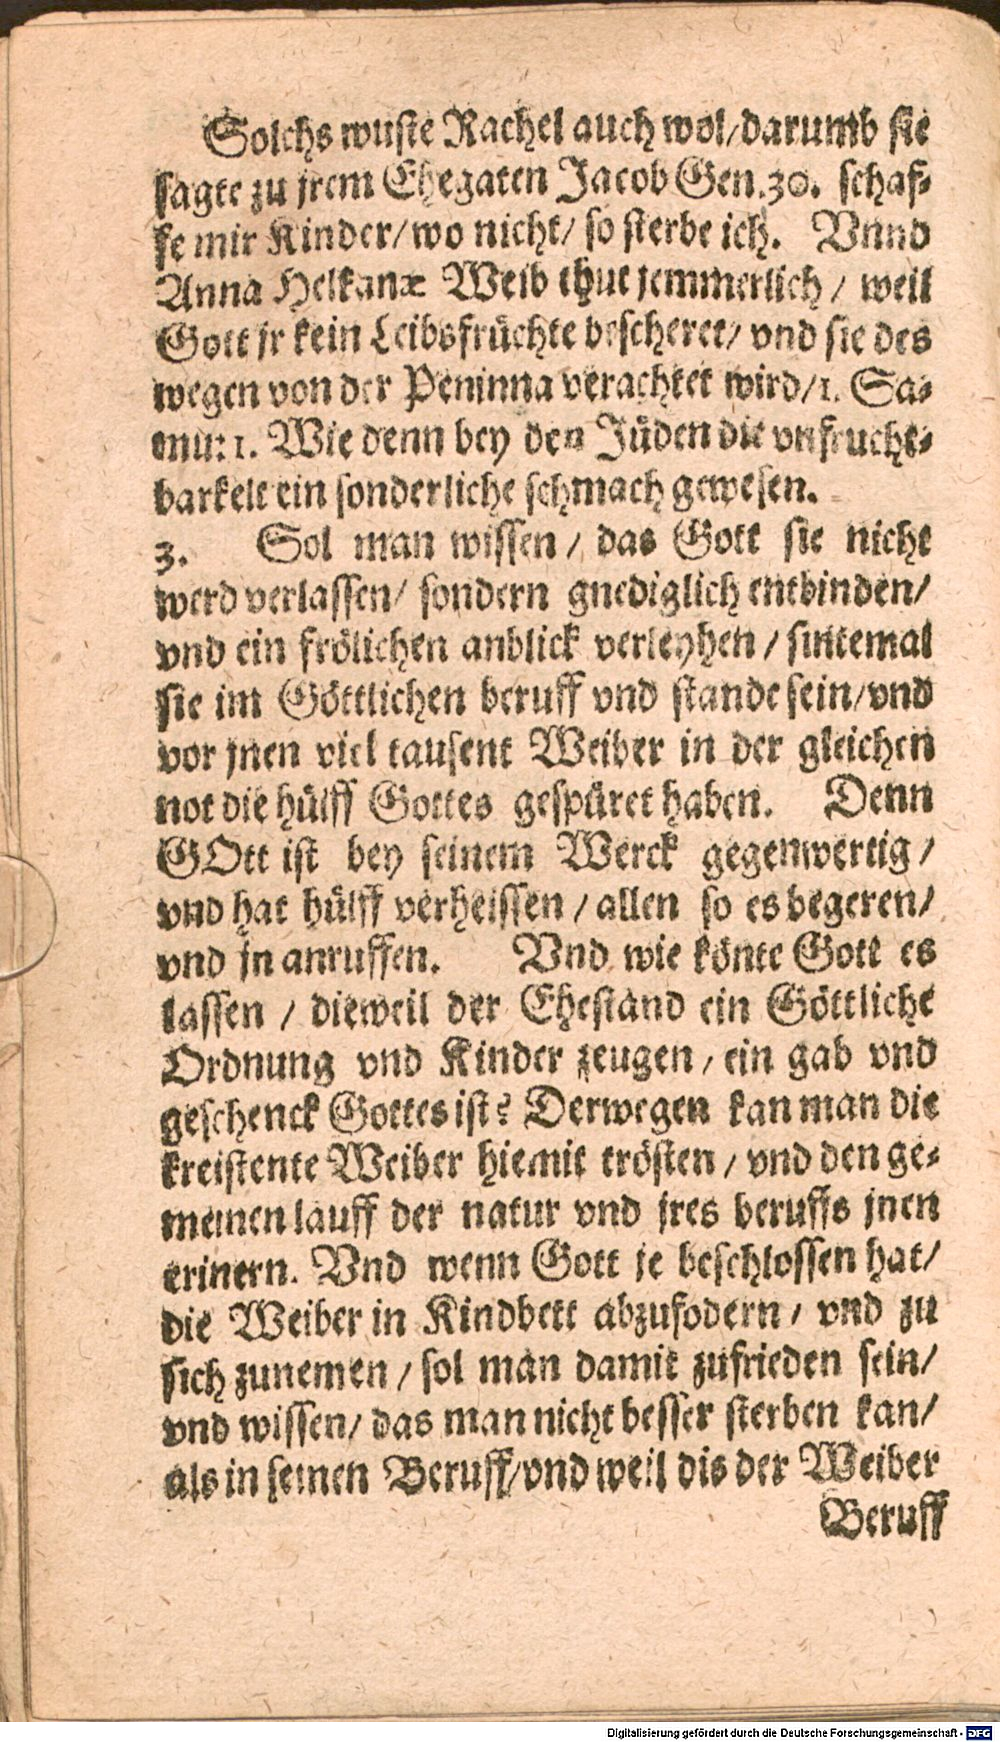 Solchs wuste Rachel auch wol/darumb sie
sagte zu jrem Ehegaten Jacob Gen.30. schaf-
fe mir Kinder/wo nicht/ so sterbe ich. Vnnd
Anna Helkanæ Weib thut jemmerlich / weil
Gott jr kein Leibsfrüchte bescheret/ vnd sie des
wegen von der Peninna verachtet wird/1. Sa-
mu: 1. Wie denn bey den Jüden die vnfrucht-
barkeit ein sonderliche schmach gewesen.
3. Sol man wissen / das Gott sie nicht
werd verlassen/ sondern gnediglich entbinden/
vnd ein frölichen anblick verleyhen / sintemal
sie im Göttlichen beruff vnd stande sein/vnd
vor jnen viel tausent Weiber in der gleichen
not die hülff Gottes gespüret haben. Denn
GOtt ist bey seinem Werck gegenwertig /
vnd hat hülff verheissen / allen so es begeren/
vnd jn anruffen. Vnd wie könte Gott es
lassen / dieweil der Ehestand ein Göttliche
Ordnung vnd Kinder zeugen / ein gab vnd
geschenck Gottes ist? Derwegen kan man die
kreistente Weiber hiemit trösten / vnd den ge-
meinen lauff der natur vnd jres beruffs jnen
erinern. Vnd wenn Gott je beschlossen hat/
die Weiber in Kindbett abzufodern / vnd zu
sich zunemen / sol man damit zufrieden sein/
vnd wissen/ das man nicht besser sterben kan/
als in seinen Beruff/vnd weil dis der Weiber
Beruff
Digitalisierung gefördert durch die Deutsche Forschungsgemeinschaft - DFG